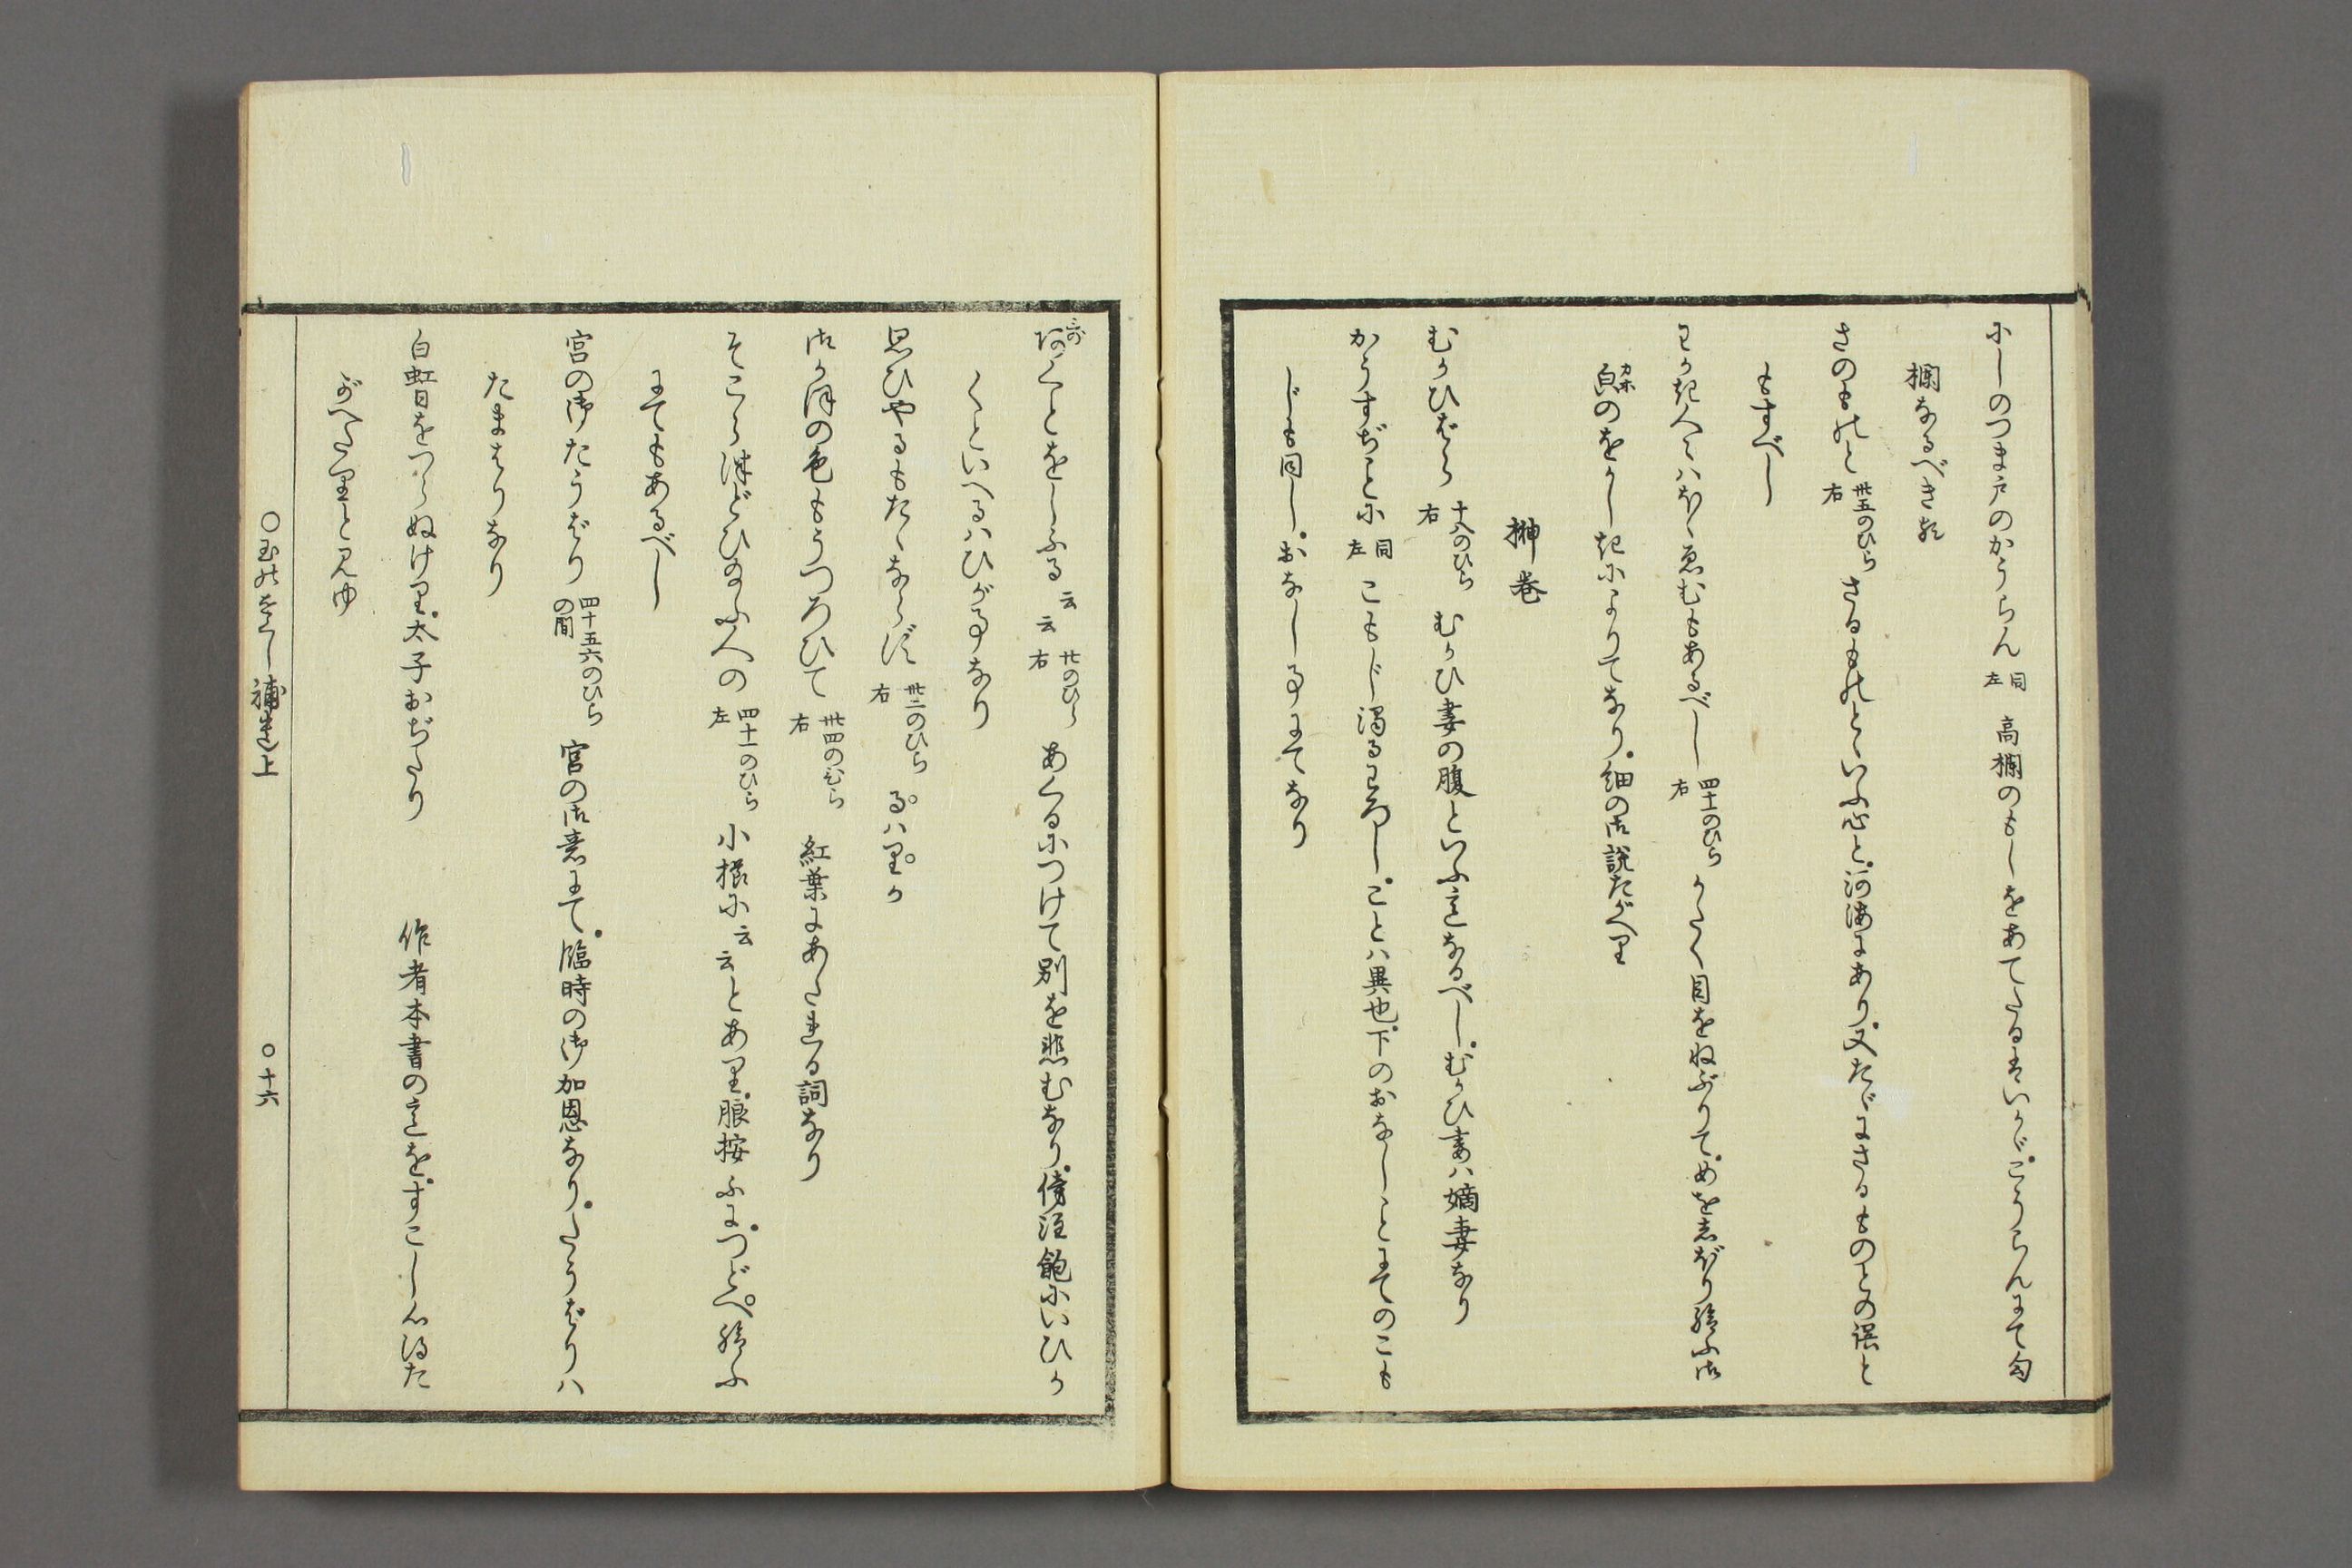 にしのつま戸のかうらん 同左 高欄のもしをあてたるはいかゞ。こうらんにて勾
欄なるべき歟
さのものと 卅五のひら右 さるものとゝいふ心と。河海にあり。又たゞにさるものとの誤と
もすべし
わかき人々はほゝゑむもあるべし 四十一のひら右 かたく目をねぶりて。めをしぼり給ふ御
㒵カホのをかしきによりてなり。細の御説たがへり
榊巻
むかひばら 十八のひら右 むかひ妻の腹といふ意なるべし。むかひ妻は嫡妻なり
かうすぢことに 同左 こもじ濁るわろし。ことは異也。下のおなしことにてのこも
じも同し。おなし事にてなり
くことをしふる云云 廿のひら右 あくるにつけて別を悲むなり。傍注飽にいひか
くといへるはひが事なり
思ひやるもたゝならず 卅二のひら右 るはりか
御かほの色もうつろひて 卅四のひら右 紅葉にあたれる詞なり
そこらほどひ給ふ人の 四十一のひら左 小櫛に云云とあり。脤按ふに。つどへ給ふ
にてもあるべし
宮の御たうばり 四十五六のひらの間 宮の御意にて。臨時の御加恩なり。たうばりは
たまはりなり
白虹日をつらぬけり。太子おぢたり 作者本書の意を。すこし心得た
がへたりと見ゆ
○玉のをくし補遺上 ○十六